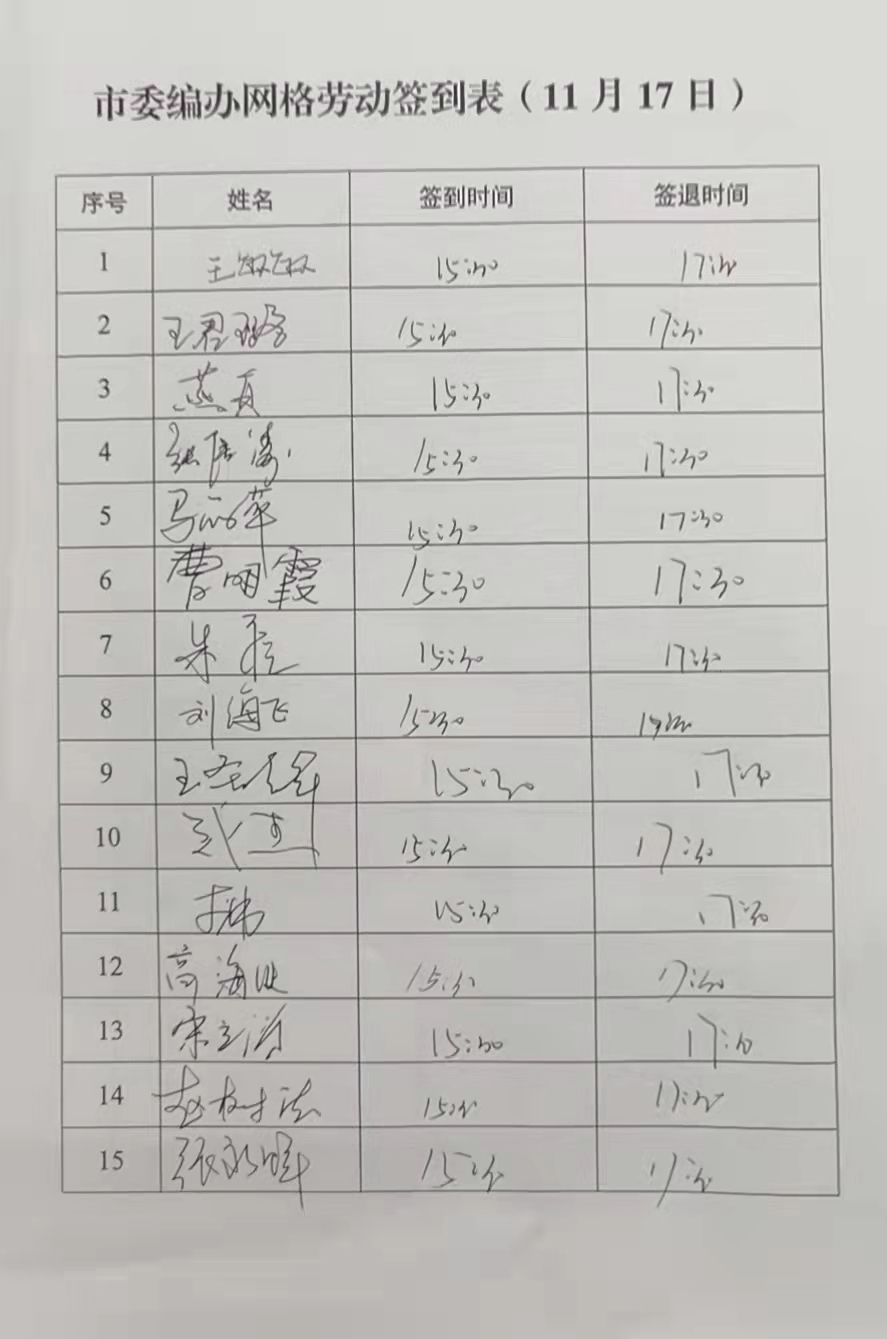 市委编办网格劳动签到表（11月17日）
序号 姓名 签到时间 签退时间
1 王敏敏 15:30 17:30
2 王君璐 15:30 17:30
3 燕 15:30 17:30
4 15:30 17:30
5 马丽萍 15:30 17:30
6 曹明霞 15:30 17:30
7 朱 15:30 17:30
8 刘海飞 1530 1730
9 王 15:30 17:30
10 15:30 17:30
11 李 15:30 17:30
12 高海 15:30 17:30
13 宋 15:30 17:30
14 赵 15:30 17:30
15 张 15:30 17:30